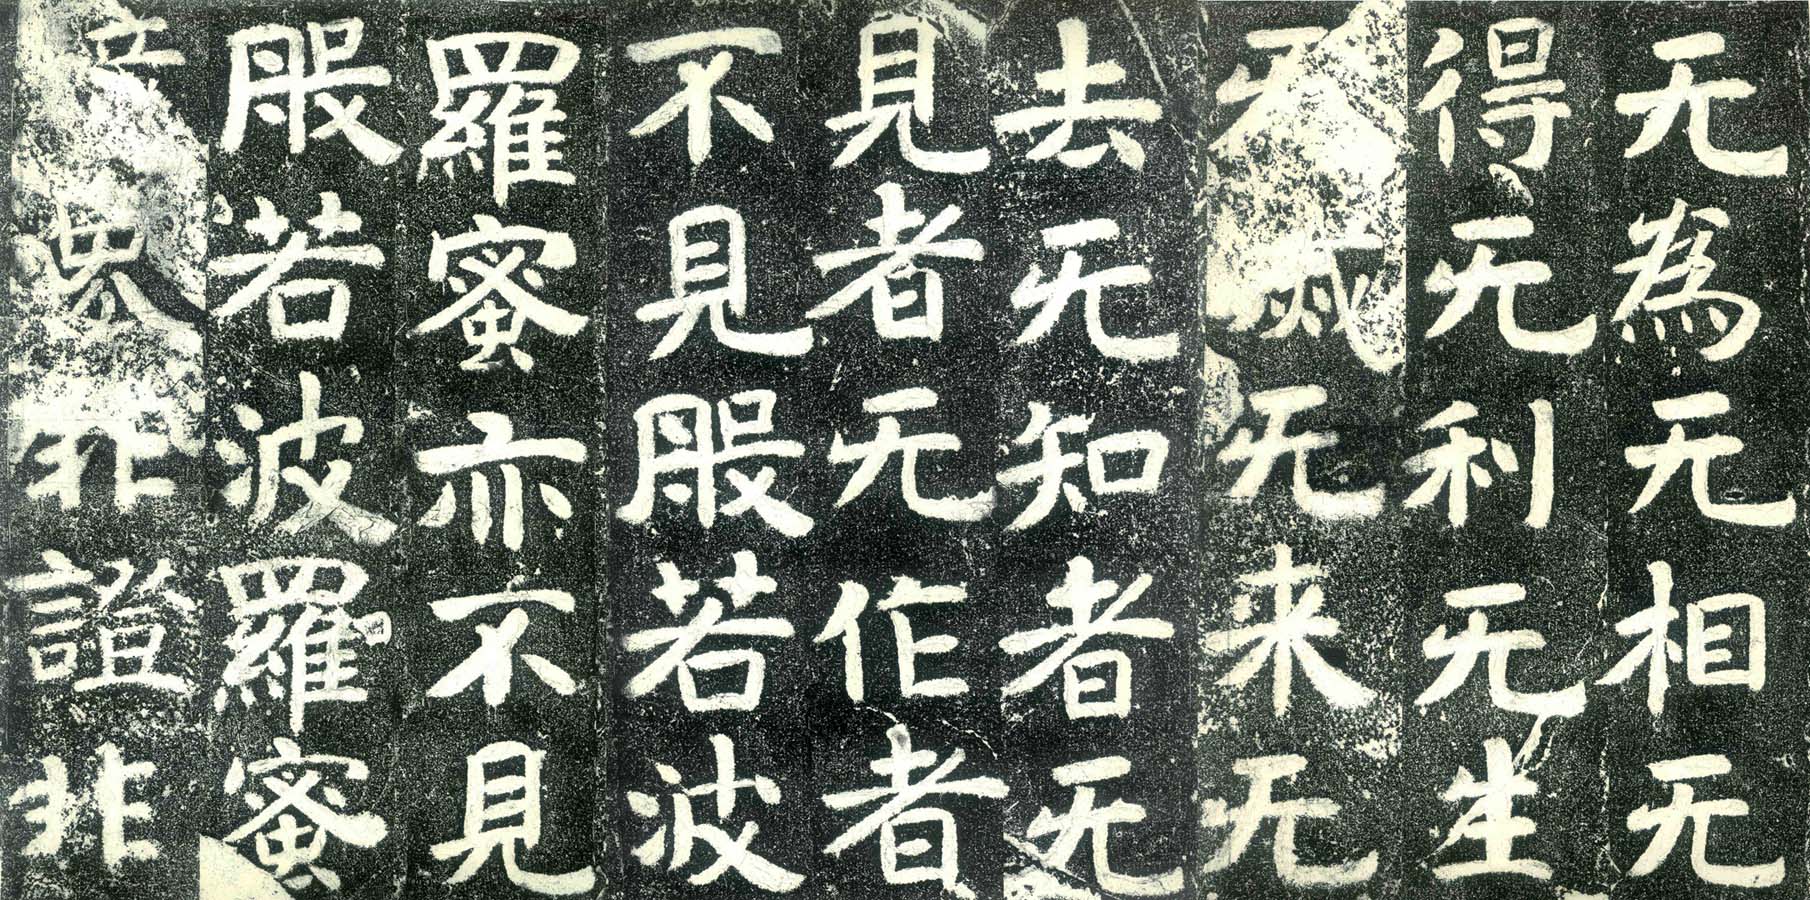 无為无相无
得无利无生
无滅无来无
去无知者无
見者无作者
不見般若波
羅蜜亦不見
般若波羅蜜
界非證非